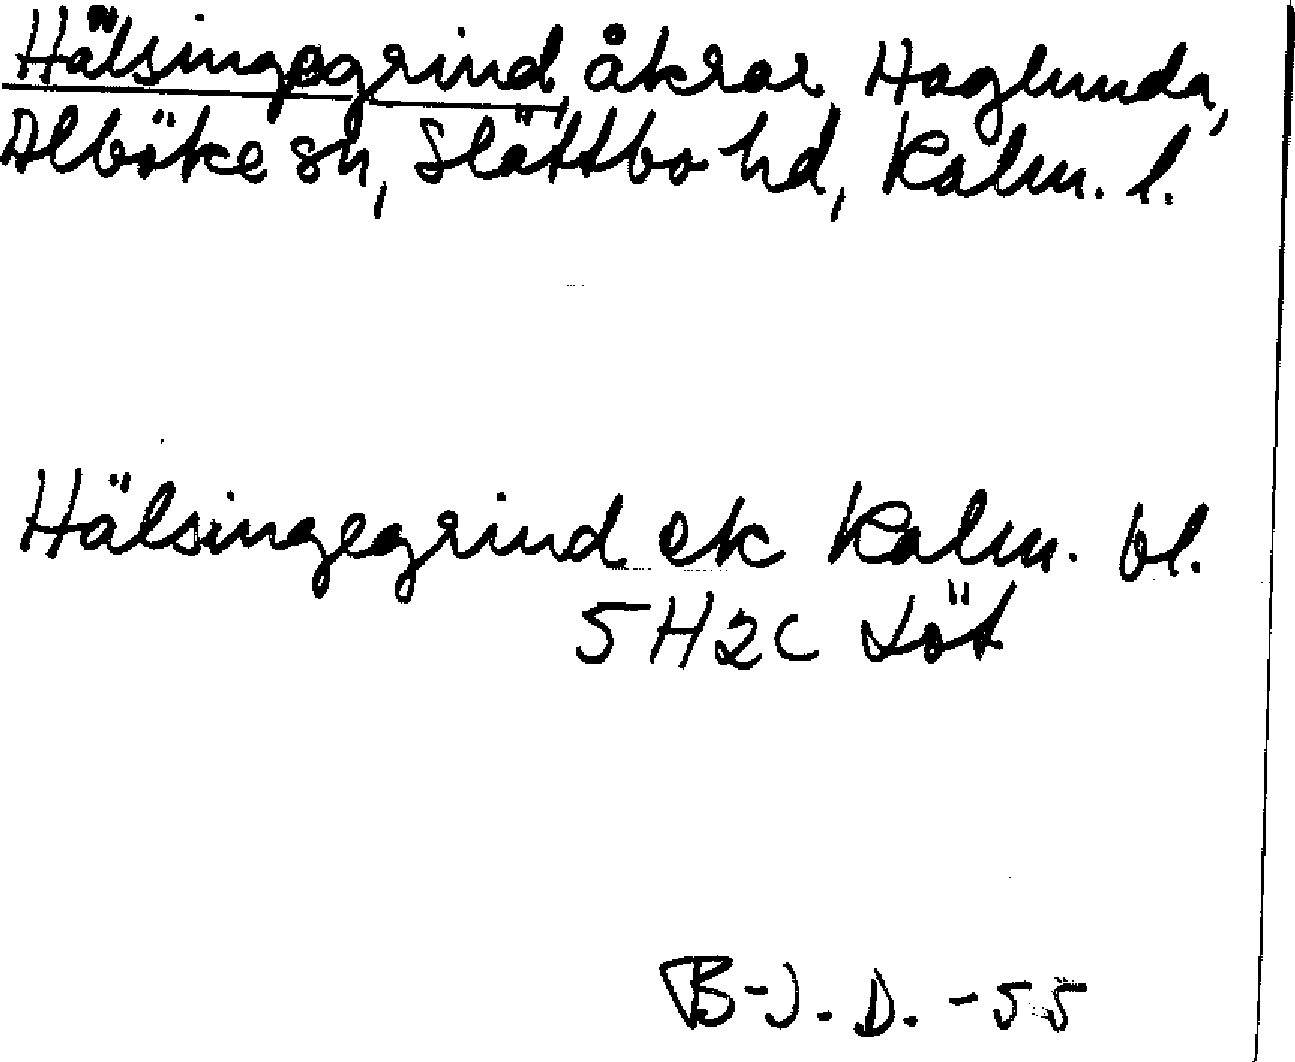 Hälsingegrind, åkrar, Haglunda,
Alböke sn, Slättbo hd, Kalm. l.
Hälsingegrind ek Kalm. bl.
5H2c Löt
B-J. D. -55